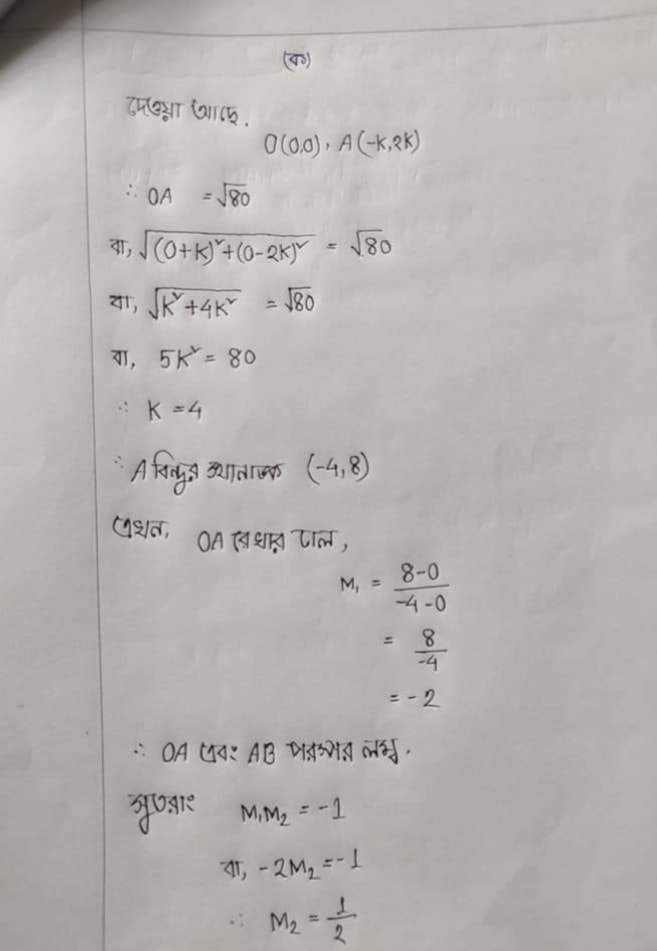 (ক)
দেওয়া আছে,
O(0,0), A(-K,2K)
∴ OA = √80
বা, √(0+K)²+(0-2K)² = √80
বা, √K²+4K² = √80
বা, 5K² = 80
∴ K = 4
∴ A বিন্দুর স্থানাঙ্ক (-4,8)
এখন, OA রেখার ঢাল,
M₁ = 8-0/-4-0
= 8/-4
= -2
∴ OA এবং AB পরস্পর লম্ব.
সুতরাং M₁M₂ = -1
বা, -2M₂ = -1
∴ M₂ = 1/2